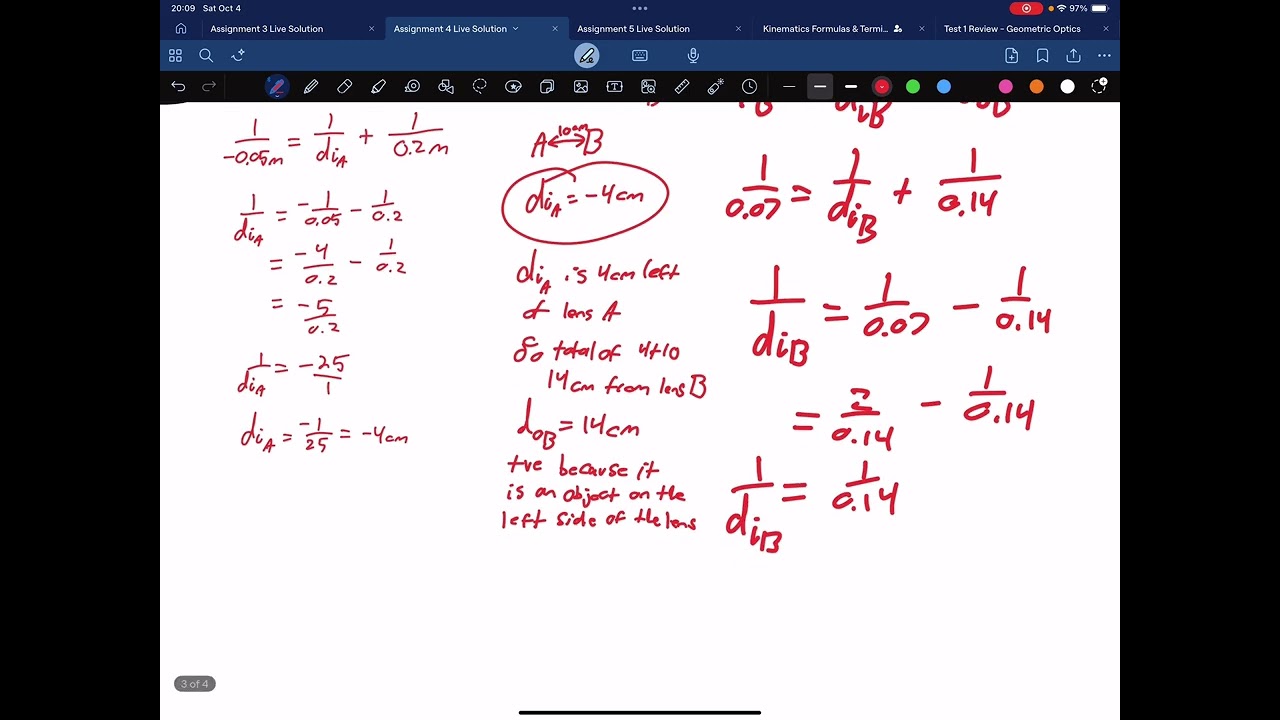 20:09 Sat Oct 4
97%
Assignment 3 Live Solution
Assignment 4 Live Solution
Assignment 5 Live Solution
Kinematics Formulas & Termi...
Test 1 Review - Geometric Optics
1/-0.05m = 1/diA + 1/0.2m
1/diA = -1/0.05 - 1/0.2
= -4/0.2 - 1/0.2
= -5/0.2
1/diA = -25/1
diA = -1/25 = -4cm
10cm
A ↔ B
diA = -4cm
diA is 4cm left
of lens A
So total of 4+10
14cm from lens B
doB = 14cm
+ve because it
is an object on the
left side of the lens
1/0.07 = 1/diB + 1/0.14
1/diB = 1/0.07 - 1/0.14
= 2/0.14 - 1/0.14
1/diB = 1/0.14
3 of 4